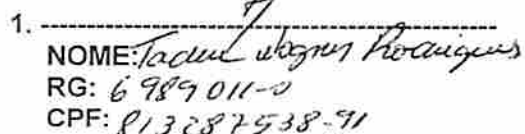 1. ------------------------------
NOME: Tadeu Wagner Rodrigues
RG: 6 989 011-0
CPF: 813287538-91